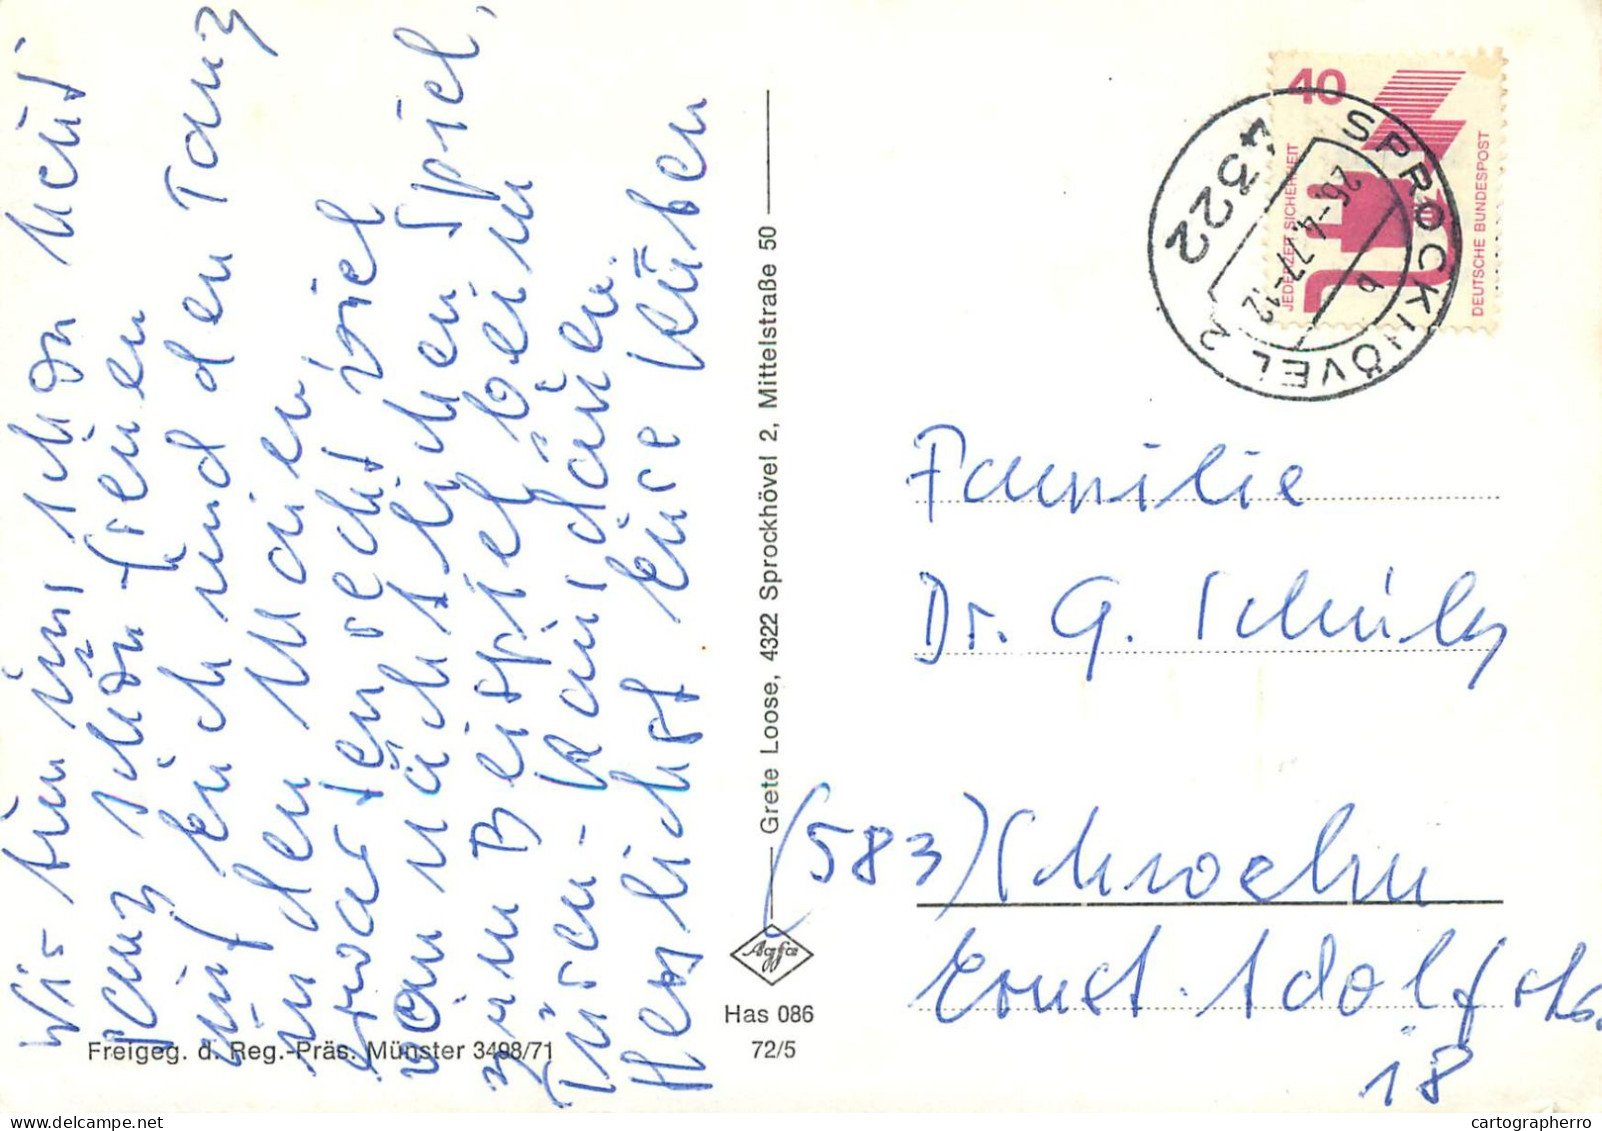 Wir tun uns schon heut
ganz schön freuen
auf euch und den Tanz
in den Maien
erwarten recht viel
vom nächtlichen Spiel,
zum Beispiel beim
Türen-
Herzlichst Eure
Freigeg. d. Reg.-Präs. Münster 3498/71
Grete Loose, 4322 Sprockhövel 2, Mittelstraße 50
Agfa
Has 086
72/5
40
JEDERZEIT SICHERHEIT
DEUTSCHE BUNDESPOST
4322 SPROCKHÖVEL 2
26.-4.77-12
b
Familie
Dr. G.
(583) Schwelm
Ernst Adolf Str.
18
cartographerro